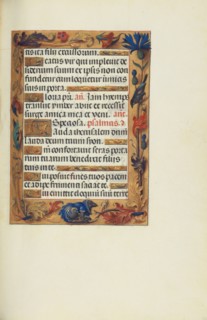 tis ita filii excussorum.
eatus vir qui implevit de
siderium suum ex ipsis non con
fundetur cum loquetur inimicis
suis in porta.
loria pri. añ. Iam hyems
transiit ymber abiit et recessit
surge amica mea et veni. añe.
Speciosa. psalmus. d.
auda iherusalem dñm
lauda deum tuum syon.
m confortavit seras porta
rum tuarum benedixit filiis
tuis in te.
ui posuit fines tuos pacem
et adipe frumenti saciat te.
ui emittit eloquium suum terre